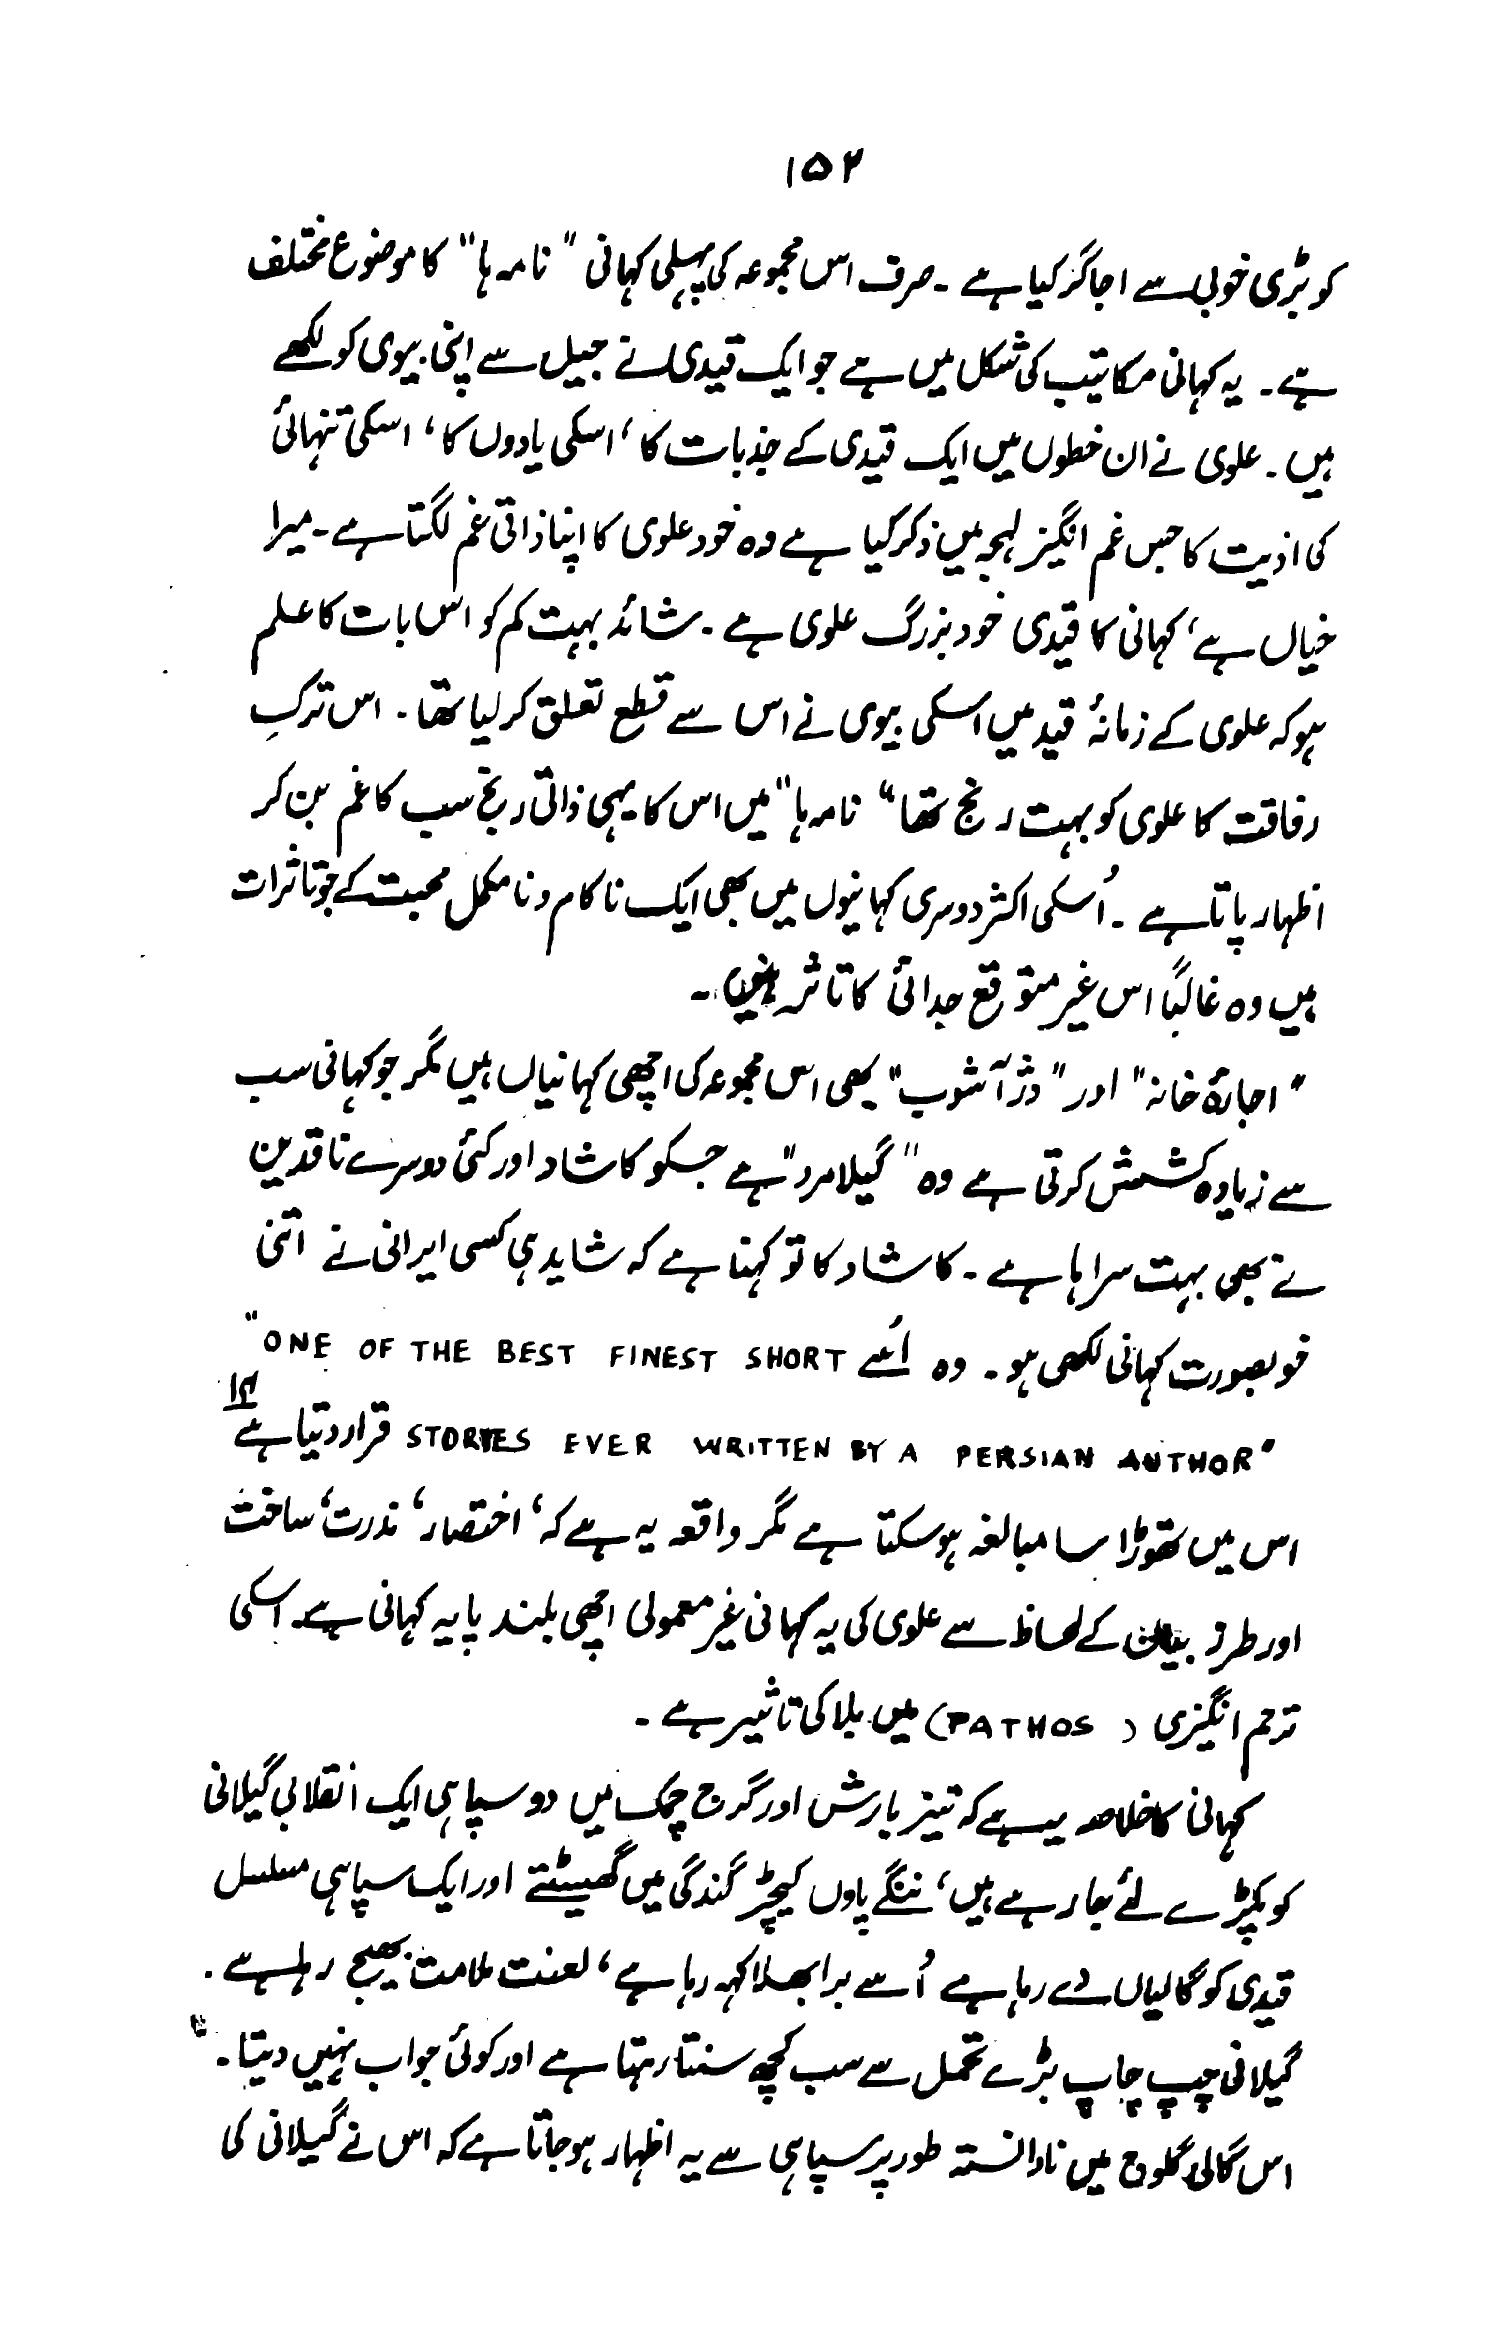 ۱۵۲
کو بڑی خوبی سے اجاگر کیا ہے ۔ صرف اس مجموعہ کی پہلی کہانی "نامہ ہا" کا موضوع مختلف
ہے ۔ یہ کہانی مکاتیب کی شکل میں ہے جو ایک قیدی نے جیل سے اپنی بیوی کو لکھے
ہیں ۔ علوی نے ان خطوں میں ایک قیدی کے جذبات کا ، اسکی یادوں کا ، اسکی تنہائی
کی اذیت کا جس غم انگیز لہجہ میں ذکر کیا ہے وہ خود علوی کا اپنا ذاتی غم لگتا ہے ۔ میرا
خیال ہے ، کہانی کا قیدی خود بزرگ علوی ہے ۔ شائد بہت کم کو اس بات کا علم
ہو کہ علوی کے زمانۂ قید میں اسکی بیوی نے اس سے قطع تعلق کر لیا تھا ۔ اس ترکِ
رفاقت کا علوی کو بہت رنج تھا "نامہ ہا" میں اس کا یہی ذاتی رنج سب کا غم بن کر
اظہار پاتا ہے ۔ اُسکی اکثر دوسری کہانیوں میں بھی ایک ناکام و نامکمل محبت کے جو تاثرات
ہیں وہ غالباً اس غیر متوقع جدائی کا تاثر ہیں ۔
"اجارۂ خانہ" اور "دژ آشوب" بھی اس مجموعہ کی اچھی کہانیاں ہیں مگر جو کہانی سب
سے زیادہ کشش کرتی ہے وہ "گیلا مرد" ہے جسکو کاشاد اور کئی دوسرے ناقدین
نے بھی بہت سراہا ہے ۔ کاشاد کا تو کہنا ہے کہ شاید ہی کسی ایرانی نے اتنی
خوبصورت کہانی لکھی ہو ۔ وہ اُسے "ONE OF THE BEST FINEST SHORT
STORIES EVER WRITTEN BY A PERSIAN AUTHOR" قرار دیتا ہے
اس میں تھوڑا سا مبالغہ ہو سکتا ہے مگر واقعہ یہ ہے کہ ، اختصار ، ندرت ، ساخت
اور طرز بیان کے لحاظ سے علوی کی یہ کہانی غیر معمولی اچھی بلند پایہ کہانی ہے اسکی
ترحم انگیزی (PATHOS) میں بلا کی تاثیر ہے ۔
کہانی کا خلاصہ یہ ہے کہ تیز بارش اور گرج چمک میں دو سپاہی ایک انقلابی گیلانی
کو پکڑے لئے جا رہے ہیں ، ننگے پاوں کیچڑ گندگی میں گھسیٹتے اور ایک سپاہی مسلسل
قیدی کو گالیاں دے رہا ہے اُسے برا بھلا کہہ رہا ہے ، لعنت ملامت بھیج رہا ہے ۔
گیلانی چپ چاپ بڑے تحمل سے سب کچھ سنتا رہتا ہے اور کوئی جواب نہیں دیتا ۔"
اس گالی گلوج میں نادانستہ طور پر سپاہی سے یہ اظہار ہو جاتا ہے کہ اس نے گیلانی کی